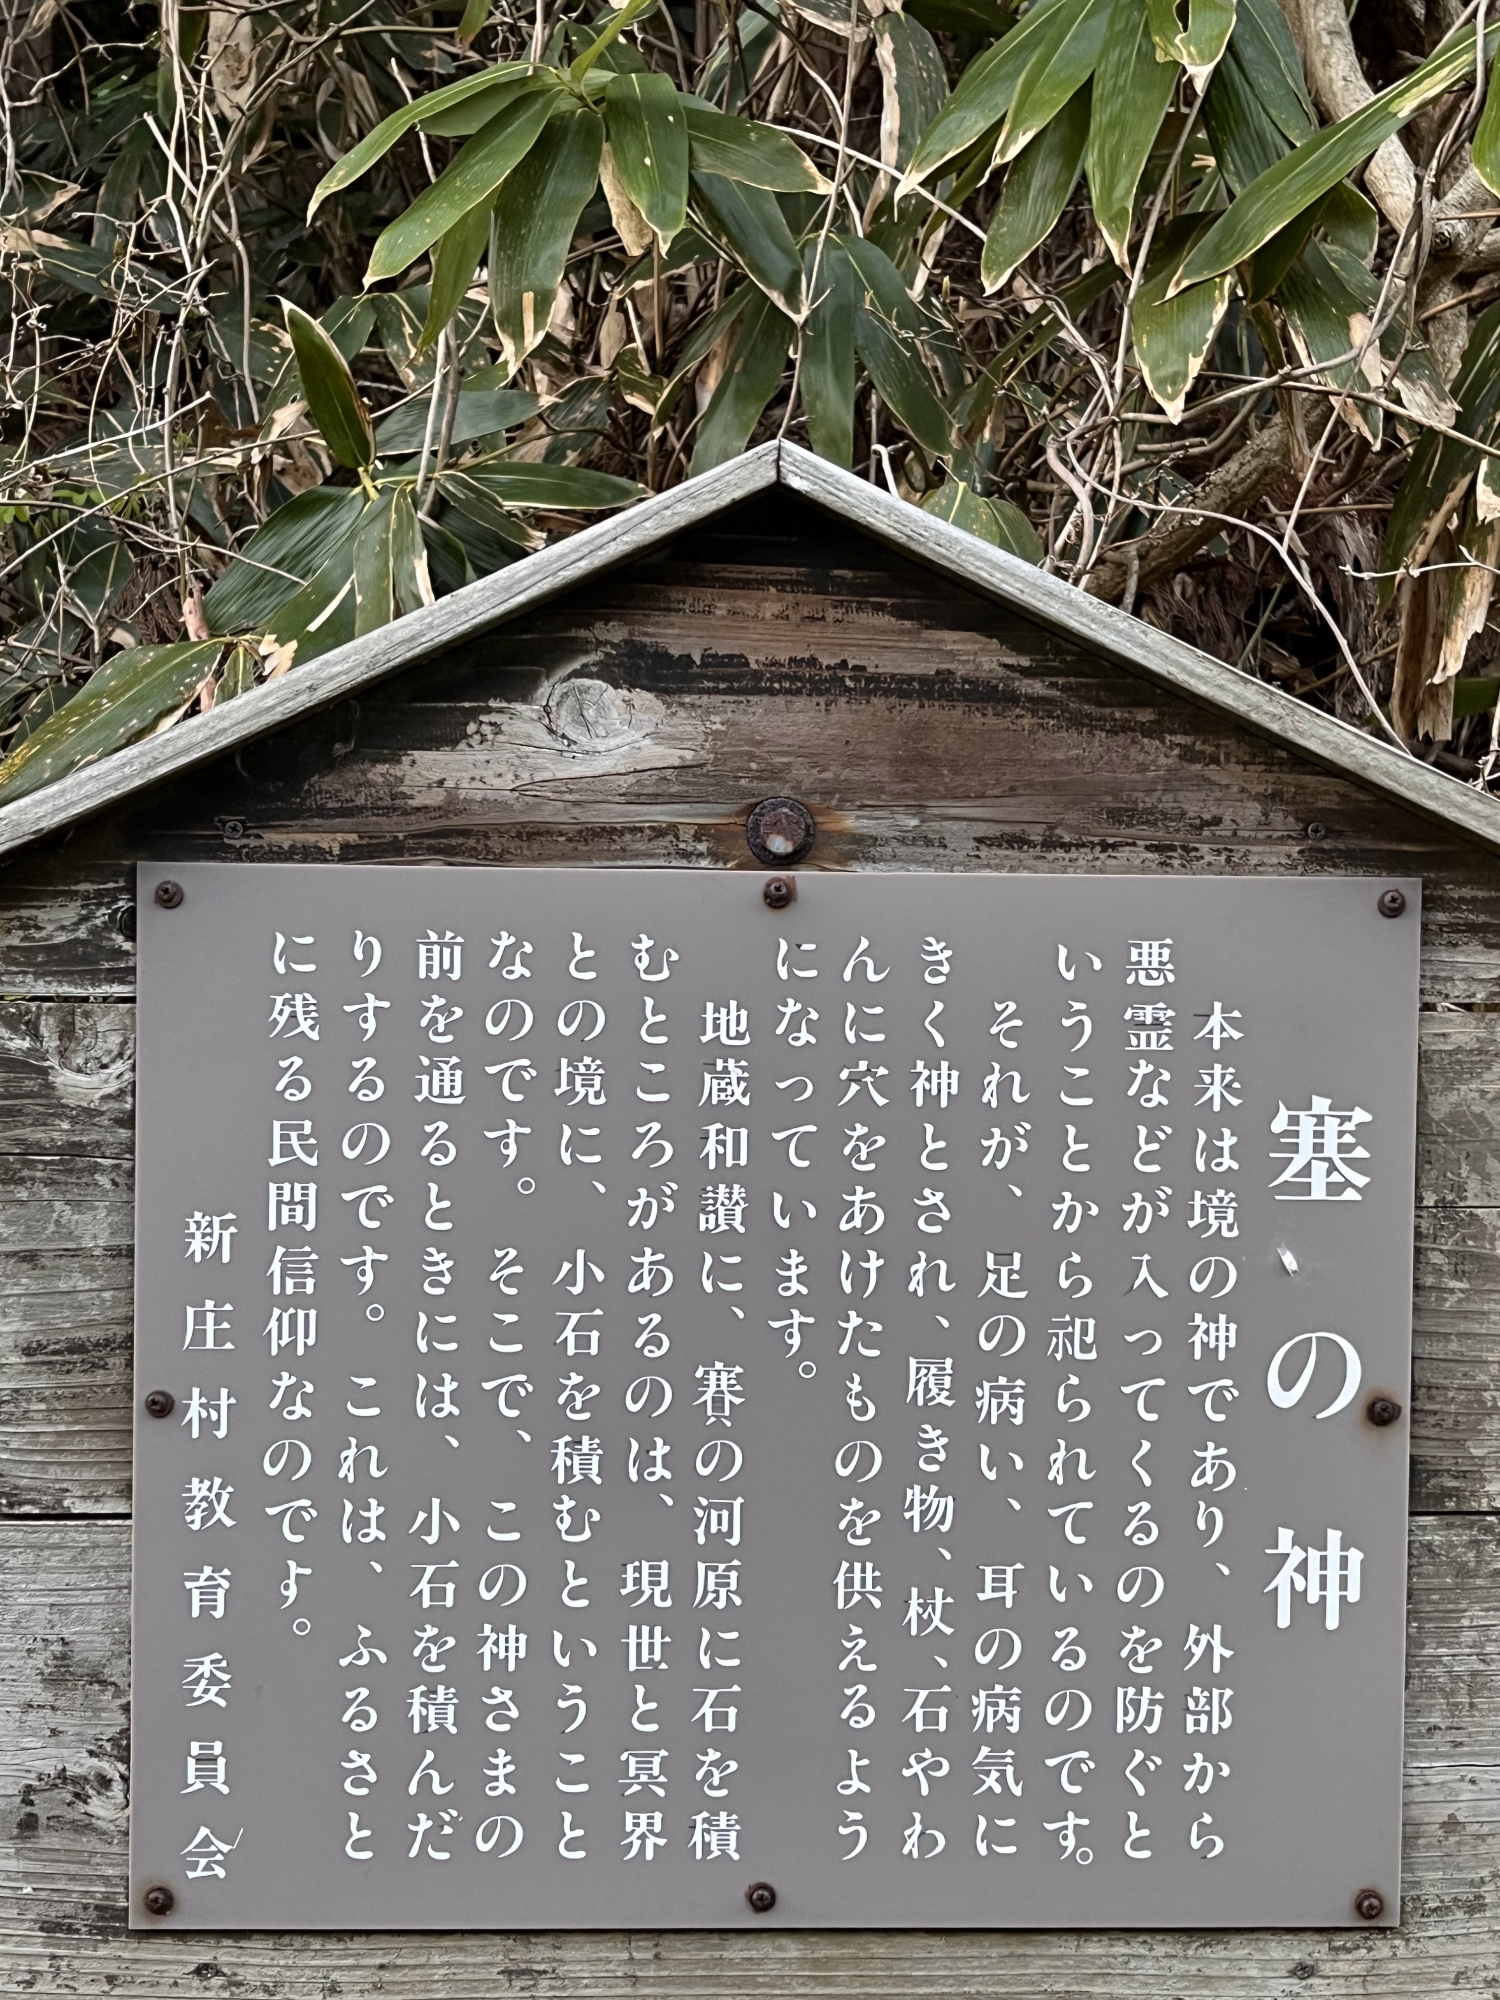 塞の神
本来は境の神であり、外部から
悪霊などが入ってくるのを防ぐと
いうことから祀られているのです。
それが、足の病い、耳の病気に
きく神とされ、履き物、杖、石やわ
んに穴をあけたものを供えるよう
になっています。
地蔵和讃に、賽の河原に石を積
むところがあるのは、現世と冥界
との境に、小石を積むということ
なのです。そこで、この神さまの
前を通るときには、小石を積んだ
りするのです。これは、ふるさと
に残る民間信仰なのです。
新庄村教育委員会